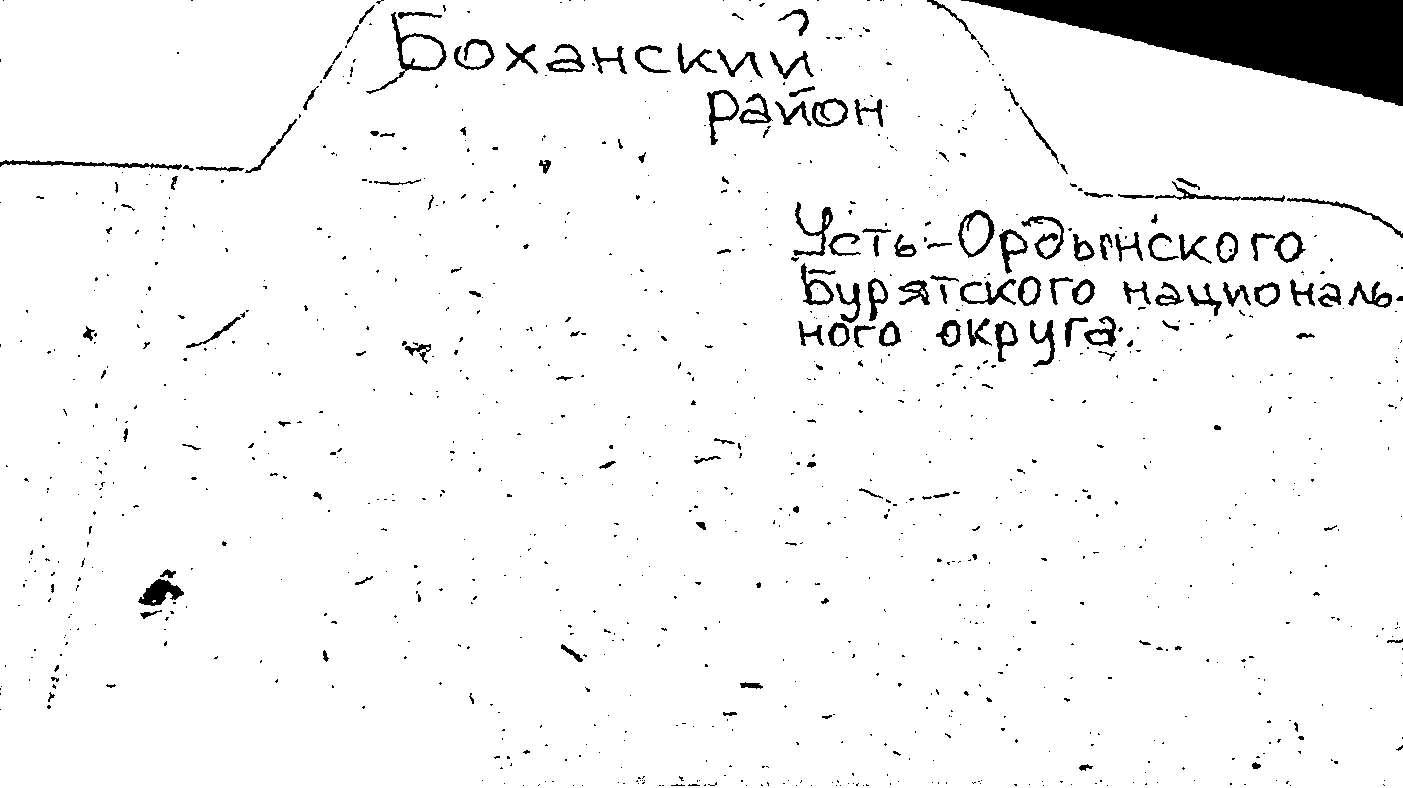 Боханский
район
Усть-Ордынского
Бурятского националь-
ного округа.